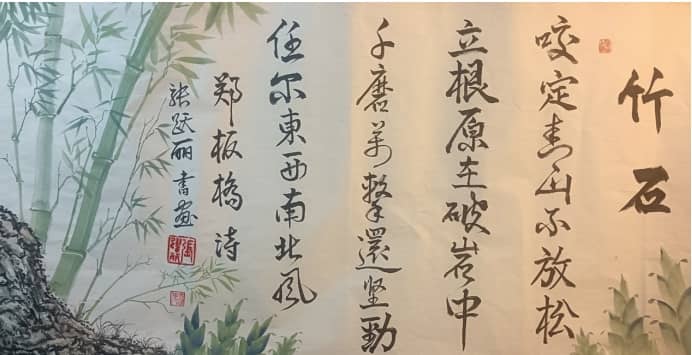 竹石
咬定青山不放松
立根原在破岩中
千磨萬擊還坚勁
任尔東西南北风
郑板橋诗
张跃丽書画